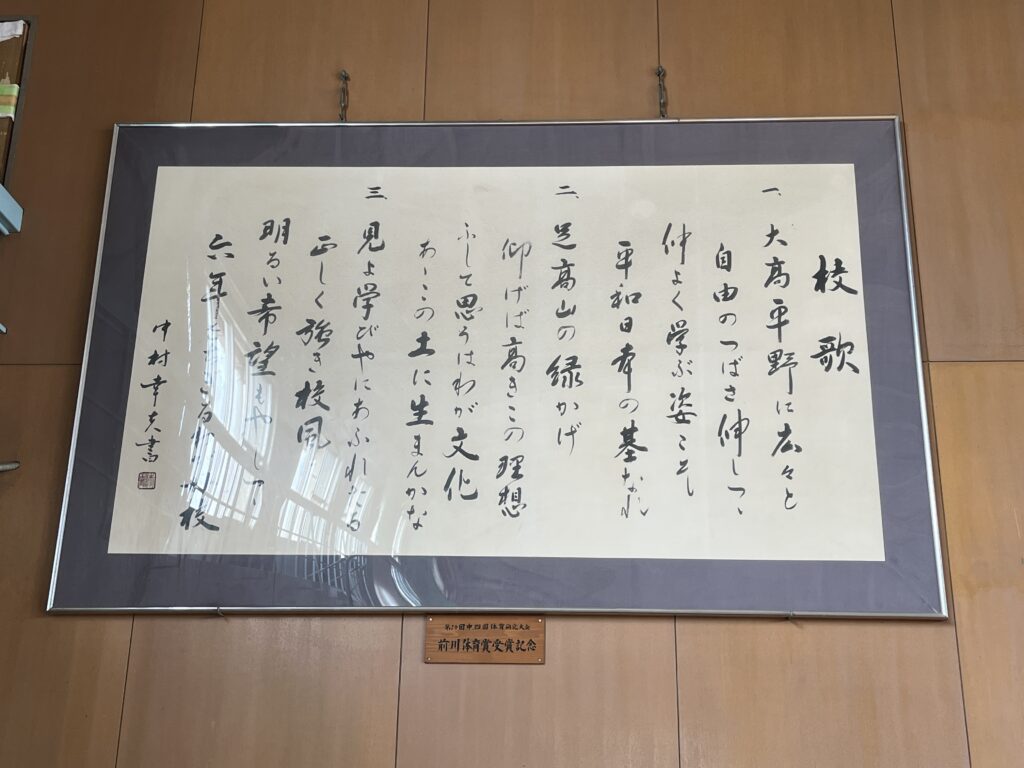 校歌
一、大高平野に広々と
自由のつばさ伸しつゝ
仲よく学ぶ姿こそ
平和日本の基なれ
二、足高山の緑かげ
仰げば高きこの理想
ふして思うはわが文化
あゝこの土に生まんかな
三、見よ学びやにあふれたる
正しく強き校風
明るい希望もやしつゝ
六年 校
中村幸夫書
中四国体育研究大会
前川体育賞受賞記念